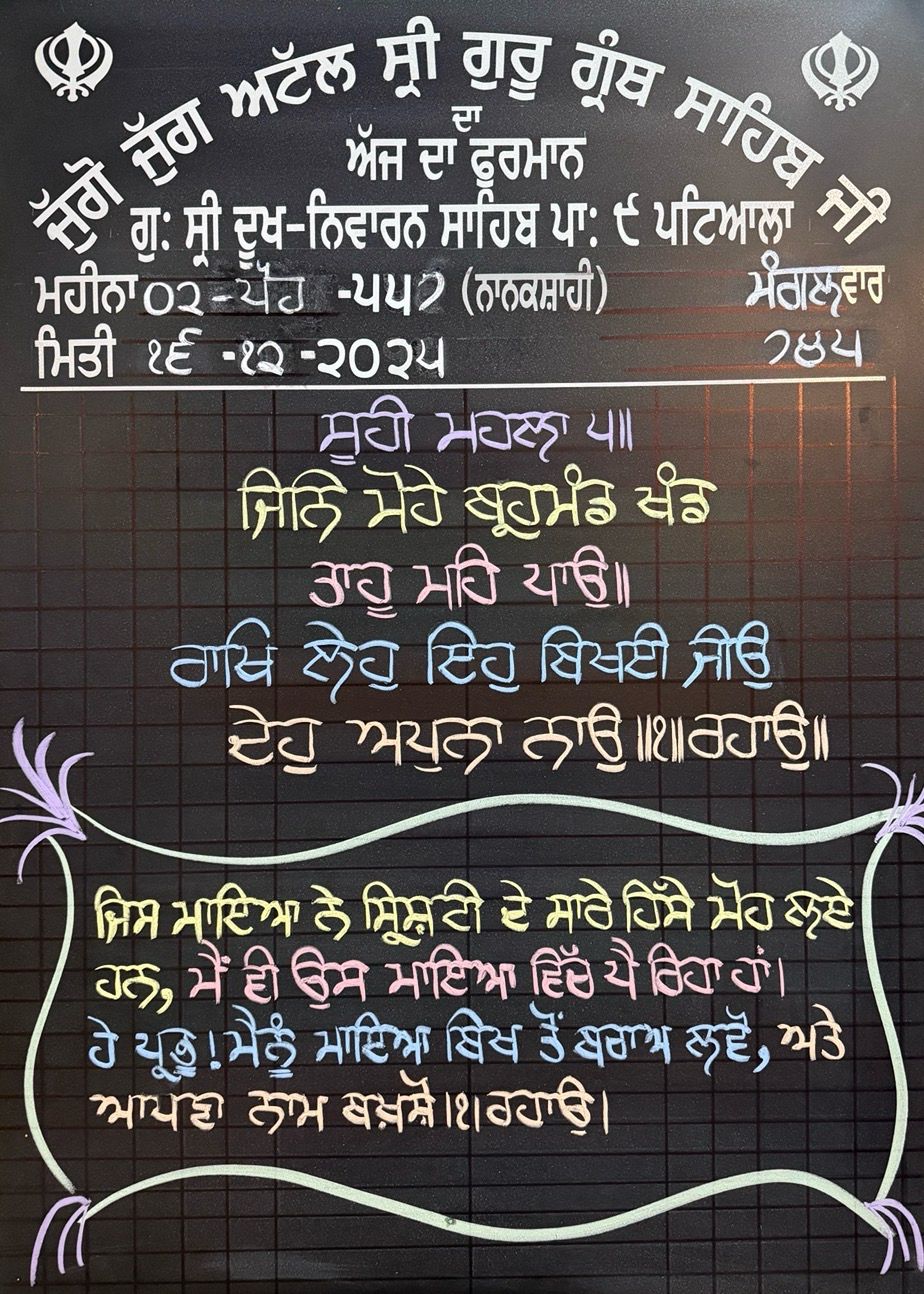 ਜੁੱਗੋ ਜੁੱਗ ਅਟੱਲ ਸ੍ਰੀ ਗੁਰੂ ਗ੍ਰੰਥ ਸਾਹਿਬ ਜੀ
ਦਾ
ਅੱਜ ਦਾ ਫੁਰਮਾਨ
ਗੁ: ਸ੍ਰੀ ਦੂਖ-ਨਿਵਾਰਨ ਸਾਹਿਬ ਪਾ: ੯ ਪਟਿਆਲਾ
ਮਹੀਨਾ ੦੨-ਪੋਹ -੫੫੭ (ਨਾਨਕਸ਼ਾਹੀ) ਮੰਗਲਵਾਰ
ਮਿਤੀ ੧੬ -੧੨ -੨੦੨੫ ੭੪੫
ਸੂਹੀ ਮਹਲਾ ੫॥
ਜਿਨਿ ਮੋਹੇ ਬ੍ਰਹਮੰਡ ਖੰਡ
ਤਾਹੂ ਮਹਿ ਪਾਉ॥
ਰਾਖਿ ਲੇਹੁ ਇਹੁ ਬਿਖਈ ਜੀਉ
ਦੇਹੁ ਅਪੁਨਾ ਨਾਉ॥੧॥ਰਹਾਉ॥
ਜਿਸ ਮਾਇਆ ਨੇ ਸ੍ਰਿਸ਼ਟੀ ਦੇ ਸਾਰੇ ਹਿੱਸੇ ਮੋਹ ਲਏ
ਹਨ, ਮੈਂ ਵੀ ਉਸ ਮਾਇਆ ਵਿੱਚ ਪੈ ਰਿਹਾ ਹਾਂ।
ਹੇ ਪ੍ਰਭੂ! ਮੈਨੂੰ ਮਾਇਆ ਬਿਖ ਤੋਂ ਬਚਾਅ ਲਵੋ, ਅਤੇ
ਆਪਣਾ ਨਾਮ ਬਖ਼ਸ਼ੋ।੧।ਰਹਾਉ।